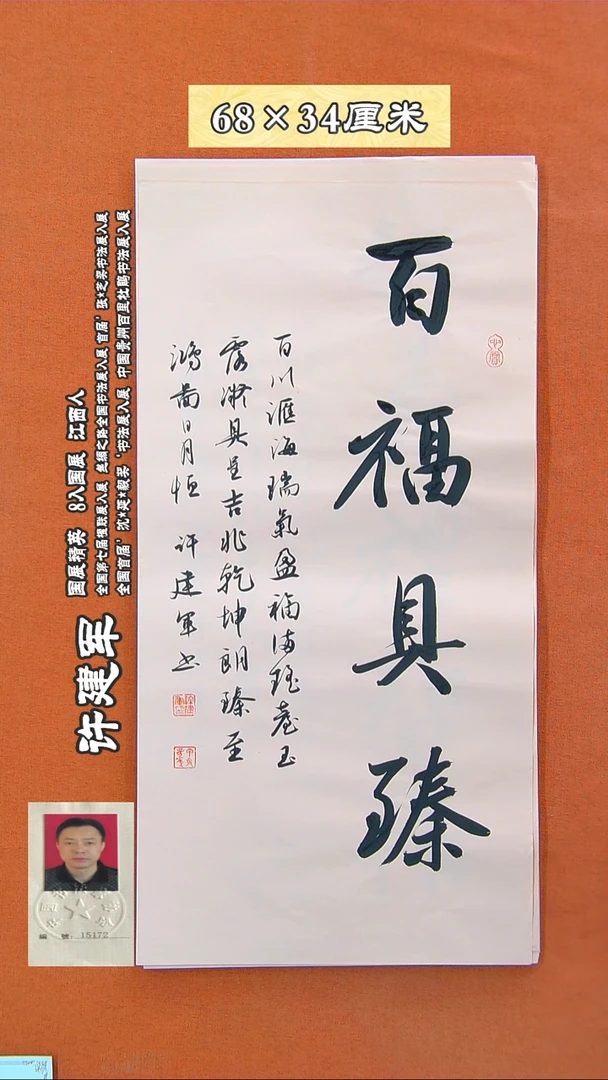 68×34厘米
百福具臻
百川滙海瑞氣盈福满瑶臺玉
露凝具呈吉兆乾坤朗臻至
鴻啚日月恒 许建军书
许建军
国展精英 8入国展 江西人
全国第七届楹联展入展 丝绸之路全国书法展入展 首届'张*芝奖书法展入展
全国首届'沈*延*毅奖'书法展入展 中国贵州百里杜鹃书法展入展
編 號: 15172